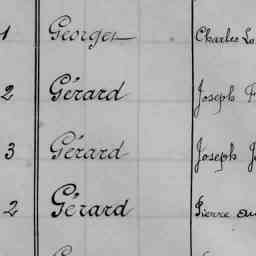 1 Georges Charles
2 Gérard Joseph
3 Gérard Joseph
2 Gérard Pierre